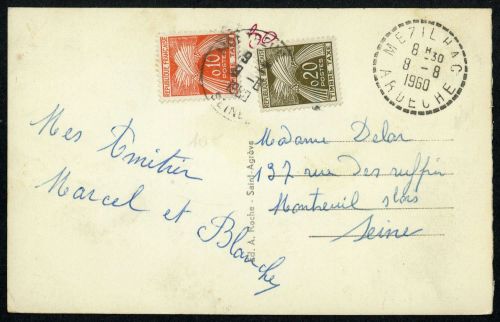 0,10
POSTES
TIMBRE TAXE
0,20
POSTES
TIMBRE TAXE
MEZILHAC
8 H 30
8 -8
1960
ARDECHE
Mes Amitiés
Marcel et Blanche
Ed. A. Roche - Saint-Agrève
Madame Delar
137 rue des ruffins
Montreuil s/bois
Seine